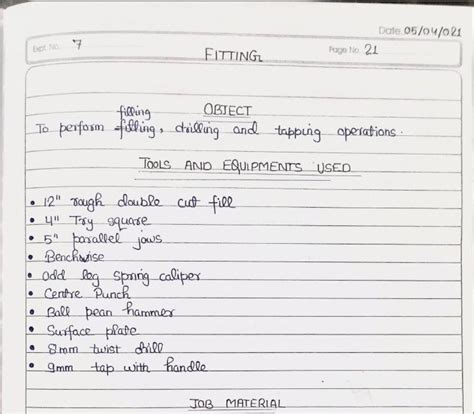 Date 05/04/021
Expt. No. 7
Page No. 21
FITTING
OBJECT
filling
To perform filling, drilling and tapping operations.
TOOLS AND EQUIPMENTS USED
• 12" rough double cut fill
• 4" Try square
• 5" parallel jaws
• Benchwise
• Odd leg spring caliper
• Centre Punch
• Ball pean hammer
• Surface plate
• 8mm twist drill
• 9mm tap with handle
JOB MATERIAL